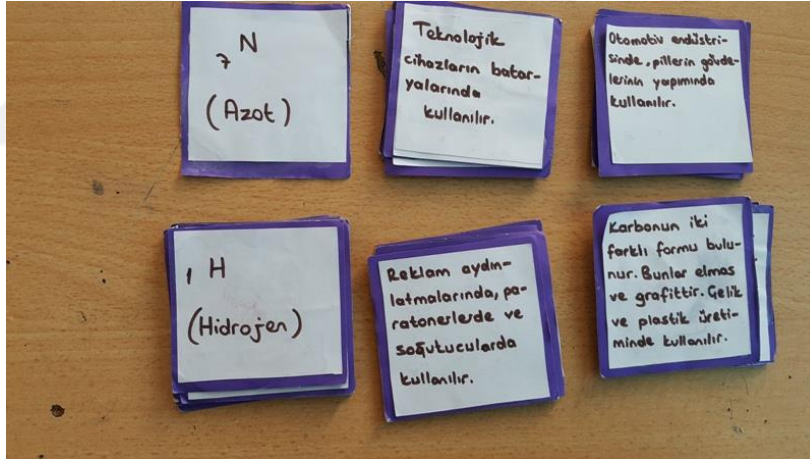 7 N
(Azot)
Teknolojik
cihazların batar-
yalarında
kullanılır.
Otomotiv endüstri-
sinde, pillerin gövde-
lerinin yapımında
kullanılır.
1 H
(Hidrojen)
Reklam aydın-
latmalarında, pa-
ratonerlerde ve
soğutucularda
kullanılır.
Karbonun iki
farklı formu bulu-
nur. Bunlar elmas
ve grafittir. Çelik
ve plastik üreti-
minde kullanılır.